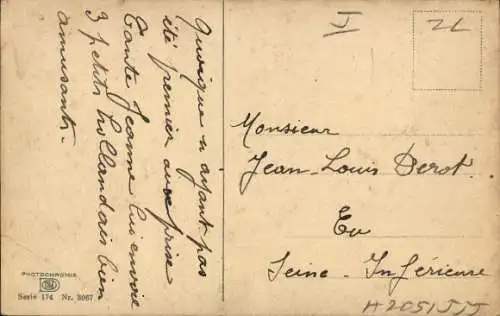 Quoique n'ayant pas
été premier aux prix
Tante Jeanne lui envoie
3 petits hollandais bien
amusants.
Monsieur
Jean-Louis Derot
Eu
Seine-Inférieure
PHOTOCHROMIE
Serie 174 Nr. 3067